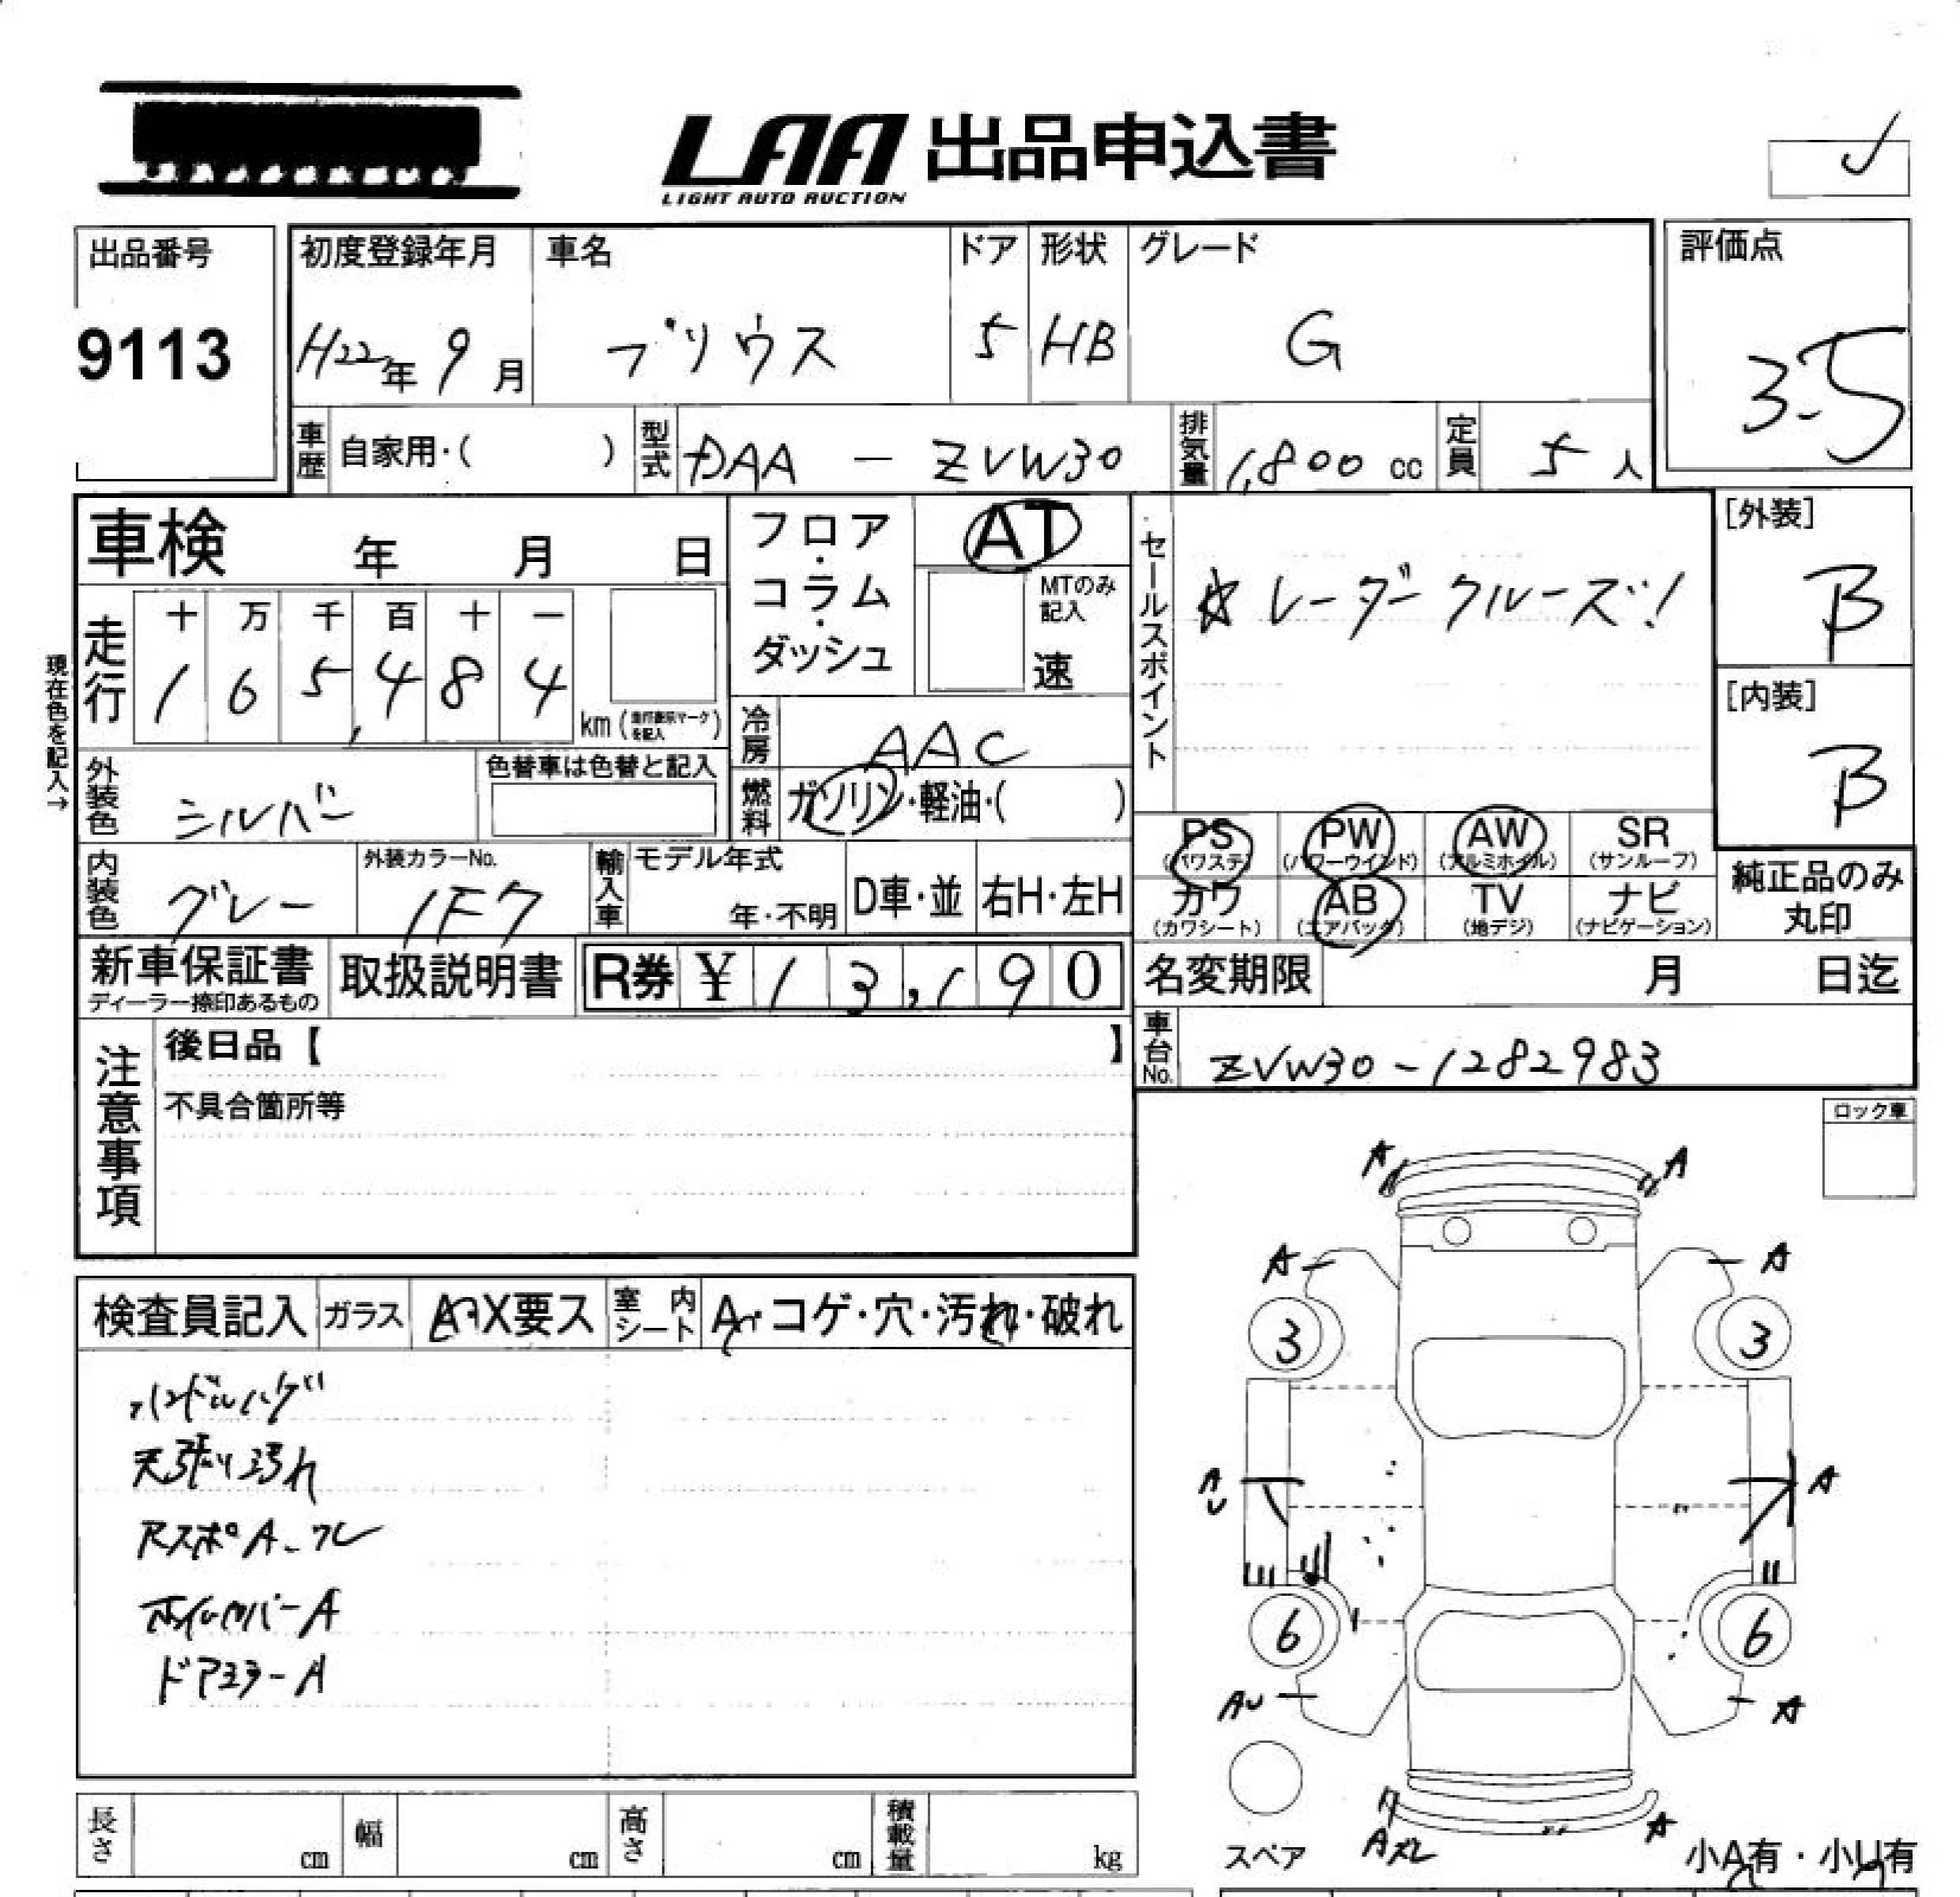 LAA 出品申込書
LIGHT AUTO AUCTION
出品番号
9113
初度登録年月
H22年 9月
車名
プリウス
ドア
5
形状
HB
グレード
G
評価点
3.5
車歴 自家用・( )
型式 DAA - ZVW30
排気量 1,800 cc
定員 5 人
車検 年 月 日
フロア・コラム・ダッシュ
AT
MTのみ記入
速
セールスポイント
☆レーダークルーズ!
[外装]
B
[内装]
B
現在色を記入→
走行
十 万 千 百 十 一
1 6 5,4 8 4
km (走行表示マークを記入)
冷房 AAC
燃料 ガソリン・軽油・( )
外装色 シルバー
色替車は色替と記入
内装色 グレー
外装カラーNo.
1F7
輸入車 モデル年式
年・不明
D車・並
右H・左H
PS (パワステ)
PW (パワーウインド)
AW (アルミホイル)
SR (サンルーフ)
カワ (カワシート)
AB (エアバック)
TV (地デジ)
ナビ (ナビゲーション)
純正品のみ丸印
新車保証書
ディーラー捺印あるもの
取扱説明書
R券 ¥ 1 3,1 9 0
名変期限 月 日迄
車台No. ZVW30-1282983
注意事項
後日品【 】
不具合箇所等
ロック車
検査員記入
ガラス A・X要ス
室内シート A・コゲ・穴・汚れ・破れ
ハンドルハゲ
天張り汚れ
RスポA_ワレ
ホイルカバーA
ドアミラーA
A A
A A
3 3
A U A
6 6
AU A
スペア
Aズレ A
小A有・小U有
長さ cm
幅 cm
高さ cm
積載量 kg